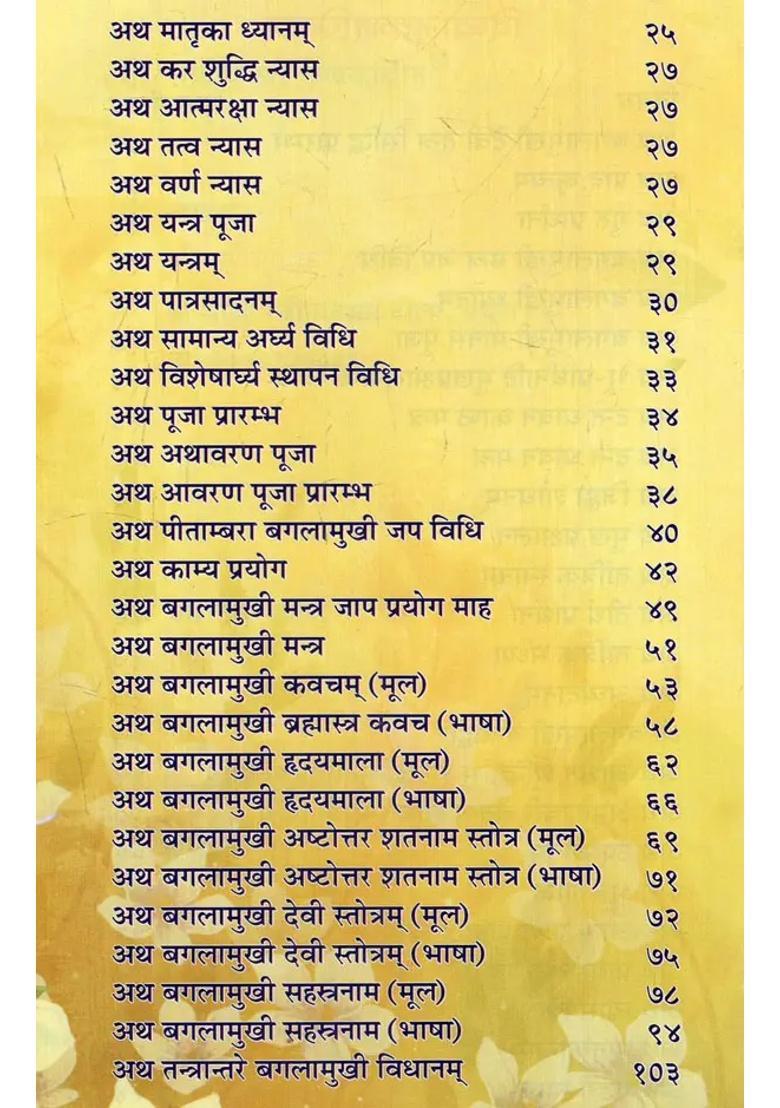 अथ मातृका ध्यानम् २५
अथ कर शुद्धि न्यास २७
अथ आत्मरक्षा न्यास २७
अथ तत्व न्यास २७
अथ वर्ण न्यास २७
अथ यन्त्र पूजा २९
अथ यन्त्रम् २९
अथ पात्रसादनम् ३०
अथ सामान्य अर्घ्य विधि ३१
अथ विशेषार्घ्य स्थापन विधि ३३
अथ पूजा प्रारम्भ ३४
अथ अथावरण पूजा ३५
अथ आवरण पूजा प्रारम्भ ३८
अथ पीताम्बरा बगलामुखी जप विधि ४०
अथ काम्य प्रयोग ४२
अथ बगलामुखी मन्त्र जाप प्रयोग माह ४९
अथ बगलामुखी मन्त्र ५१
अथ बगलामुखी कवचम् (मूल) ५३
अथ बगलामुखी ब्रह्मास्त्र कवच (भाषा) ५८
अथ बगलामुखी हृदयमाला (मूल) ६२
अथ बगलामुखी हृदयमाला (भाषा) ६६
अथ बगलामुखी अष्टोत्तर शतनाम स्तोत्र (मूल) ६९
अथ बगलामुखी अष्टोत्तर शतनाम स्तोत्र (भाषा) ७१
अथ बगलामुखी देवी स्तोत्रम् (मूल) ७२
अथ बगलामुखी देवी स्तोत्रम् (भाषा) ७५
अथ बगलामुखी सहस्त्रनाम (मूल) ७८
अथ बगलामुखी सहस्त्रनाम (भाषा) ९४
अथ तन्त्रान्तरे बगलामुखी विधानम् १०३